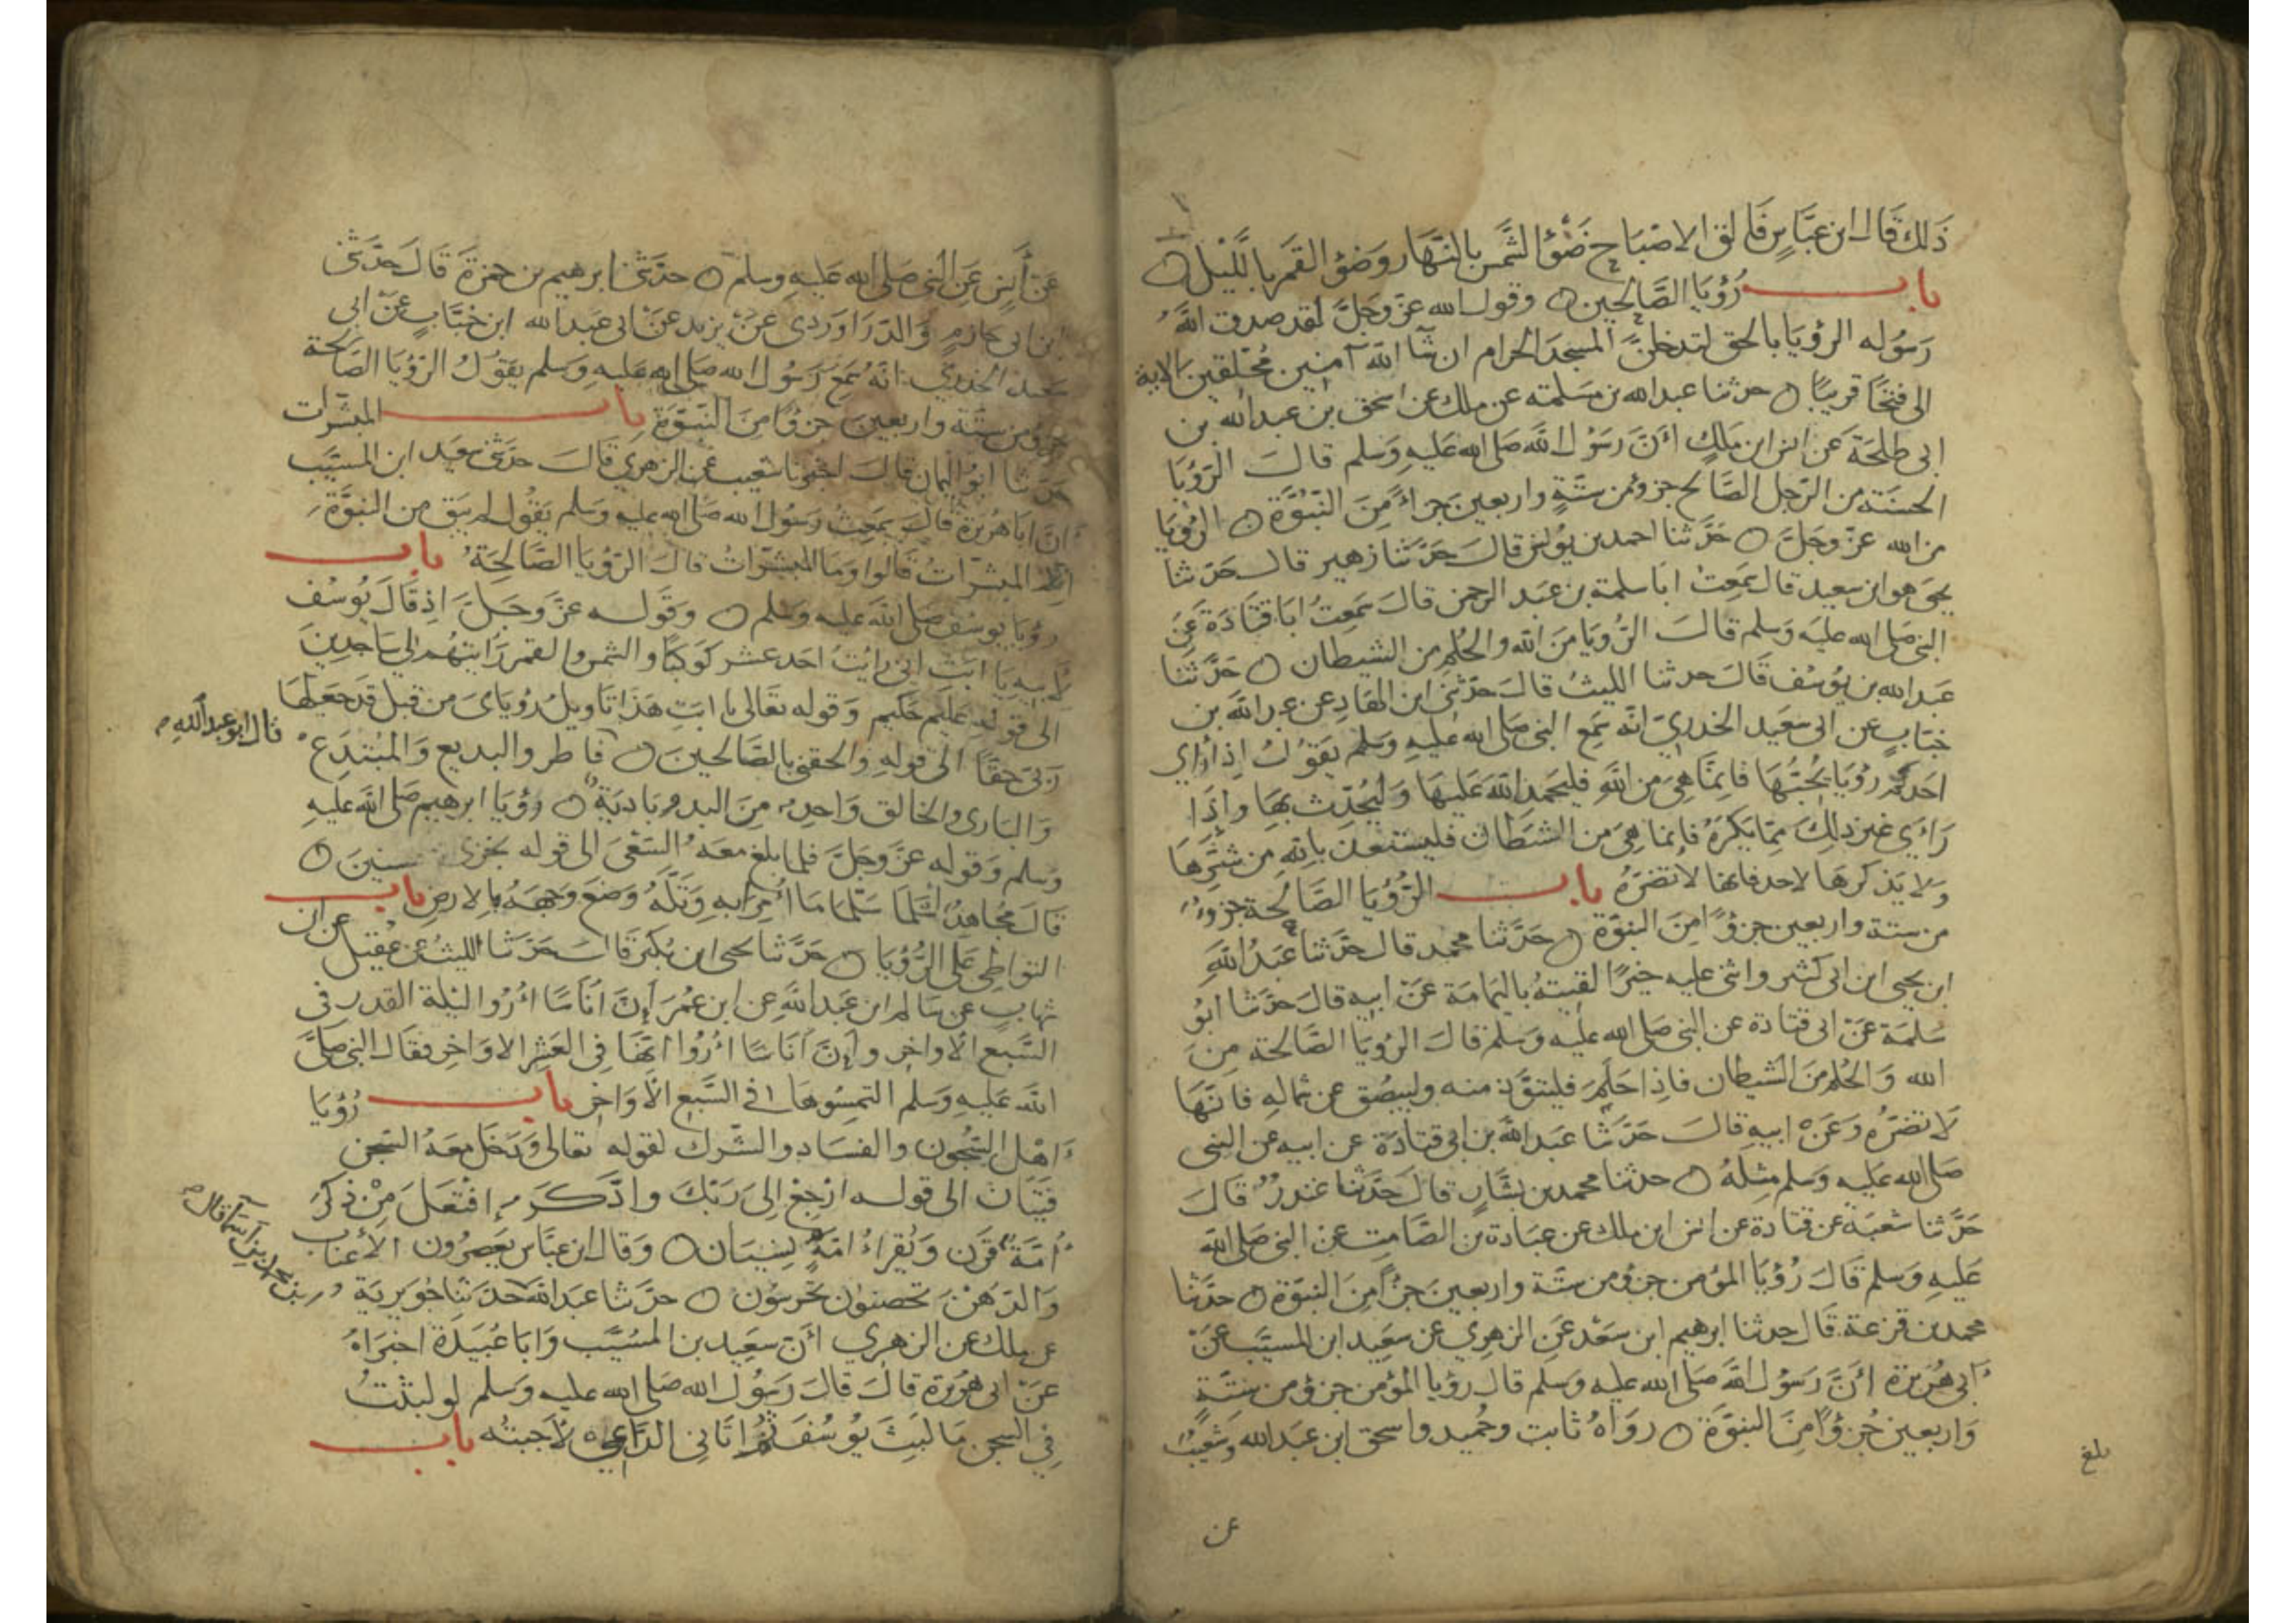 ذلك قال ابن عباس فالق الاصباح ضوء الشمس بالنهار وضوء القمر بالليل
باب رؤيا الصالحين وقول الله عز وجل لقد صدق الله
رسوله الرؤيا بالحق لتدخلن المسجد الحرام ان شا الله آمنين محلقين الاية
الى فتحا قريبا حدثنا عبد الله بن مسلمة عن ملك عن اسحق بن عبد الله بن
ابى طلحة عن انس ابن ملك أن رسول الله صلى الله عليه وسلم قال الرؤيا
الحسنة من الرجل الصالح جزؤ من ستة واربعين جزاء من النبوة الرؤيا
من الله عز وجل حدثنا احمد بن يونس قال حدثنا زهير قال حدثنا
يحيى هو ابن سعيد قال سمعت ابا سلمة بن عبد الرحمن قال سمعت ابا قتادة عن
النبى صلى الله عليه وسلم قال الرؤيا من الله والحلم من الشيطان حدثنا
عبد الله بن يوسف قال حدثنا الليث قال حدثنى ابن الهاد عن عبد الله بن
خباب عن ابى سعيد الخدري انه سمع النبى صلى الله عليه وسلم يقول اذا رأي
احدكم رؤيا يحبها فانما هي من الله فليحمد الله عليها وليحدث بها وإذا
رأى غير ذلك مما يكره فإنما هي من الشيطان فليستعذ بالله من شرها
ولا يذكرها لاحد فانها لا تضره باب الرؤيا الصالحة جزؤ
من ستة واربعين جزؤا من النبوة حدثنا محمد قال حدثنا عبد الله
ابن يحيى ابن ابى كثير واثنى عليه خيرا لقيته باليمامة عن ابيه قال حدثنا ابو
سلمة عن ابى قتادة عن النبى صلى الله عليه وسلم قال الرؤيا الصالحة من
الله والحلم من الشيطان فاذا حلم فليتعوذ منه وليبصق عن شماله فانها
لا تضره وعن ابيه قال حدثنا عبد الله بن ابى قتادة عن ابيه عن النبى
صلى الله عليه وسلم مثله حدثنا محمد بن بشار قال حدثنا غندر قال
حدثنا شعبة عن قتادة عن انس ابن ملك عن عبادة بن الصامت عن النبى صلى الله
عليه وسلم قال رؤيا المؤمن جزؤ من ستة واربعين جزأ من النبوة حدثنا
محمد بن قزعة قال حدثنا ابرهيم ابن سعد عن الزهري عن سعيد ابن المسيب عن
ابى هريرة أن رسول الله صلى الله عليه وسلم قال رؤيا المؤمن جزؤ من ستة
واربعين جزؤا من النبوة رواه ثابت وحميد واسحق ابن عبد الله وشعيب
بلغ
عن
عن أنس عن النبى صلى الله عليه وسلم حدثنى ابرهيم بن حمزة قال حدثنى
ابن ابى حازم والدراوردى عن يزيد عن ابى عبد الله ابن خباب عن ابى
سعيد الخدري انه سمع رسول الله صلى الله عليه وسلم يقول الرؤيا الصالحة
جزؤ من ستة واربعين جزؤا من النبوة باب المبشرات
حدثنا ابو اليمان قال اخبرنا شعيب عن الزهري قال حدثنى سعيد ابن المسيب
ان ابا هريرة قال سمعت رسول الله صلى الله عليه وسلم يقول لم يبق من النبوة
الا المبشرات قالوا وما المبشرات قال الرؤيا الصالحة باب
رؤيا يوسف صلى الله عليه وسلم وقوله عز وجل اذ قال يوسف
لابيه يا ابت انى رايت احد عشر كوكبا والشمس والقمر رايتهم لي ساجدين
الى قوله عليم حكيم وقوله تعالى يا ابت هذا تاويل رؤياى من قبل قد جعلها
ربى حقا الى قوله والحقنى بالصالحين فاطر والبديع والمبتدع
قال ابو عبد الله
والبارى والخالق واحد من البدو بادية رؤيا ابرهيم صلى الله عليه
وسلم وقوله عز وجل فلما بلغ معه السعى الى قوله نجزى المحسنين
قال مجاهد أسلما سلما ما أمرا به وتله وضع وجهه بالارض باب
التواطى على الرؤيا حدثنا يحيى ابن بكير قال حدثنا الليث عن عقيل عن ابن
شهاب عن سالم ابن عبد الله عن ابن عمر إن أناسا أروا ليلة القدر فى
السبع الاواخر وإن أناسا أروا انها فى العشر الاواخر فقال النبى صلى
الله عليه وسلم التمسوها فى السبع الاواخر باب رؤيا
اهل السجون والفساد والشرك لقوله تعالى ودخل معه السجن
فتيان الى قوله ارجع الى ربك وادكر إفتعل من ذكر
أمة قرن ويقراء أمه نسيان وقال ابن عباس يعصرون الأعناب
والدهن تحصنون تحرسون حدثنا عبد الله حدثنا جويرية
بن محمد بن اسما قال
عن ملك عن الزهري أن سعيد بن المسيب وابا عبيدة اخبراه
عن ابى هريرة قال قال رسول الله صلى الله عليه وسلم لو لبثت
في السجن ما لبث يوسف ثم اتانى الداعى لأجبته باب